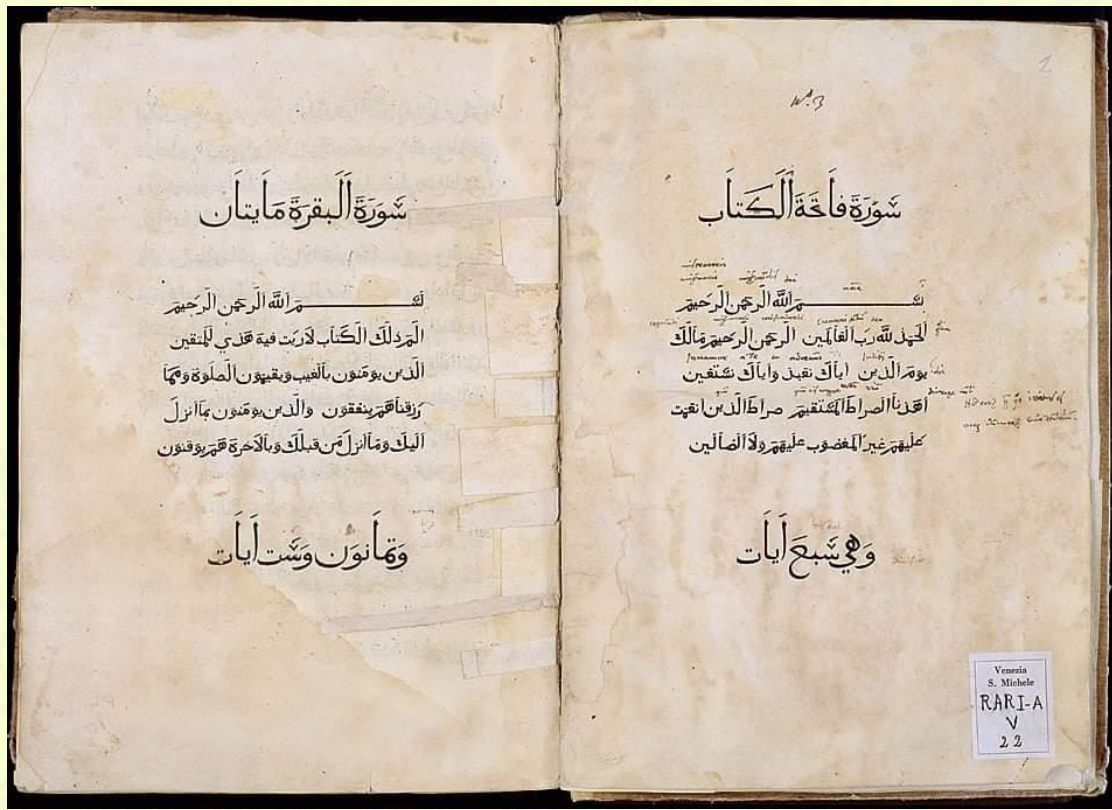 2
سورة فاتحة الكتاب
بسم الله الرحمن الرحيم
الحمد لله رب العالمين الرحمن الرحيم مالك
يوم الذين اياك نعبذ واياك نستعين
اهذنا الصراط المستقيم صراط الذين انعمت
عليهم غير المغضوب عليهم ولا الضالين
وهي سبع ايات
سورة البقرة مايتان
بسم الله الرحمن الرحيم
الم ذلك الكتاب لا ريب فيه هذي للمتقين
الذين يومنون بالغيب ويقيمون الصلوة ومما
رزقناهم ينفقون والذين يومنون بما انزل
اليك وما انزل من قبلك وبالاخرة هم يوقنون
وثمانون وست ايات
Venezia
S. Michele
RARI-A
V
22